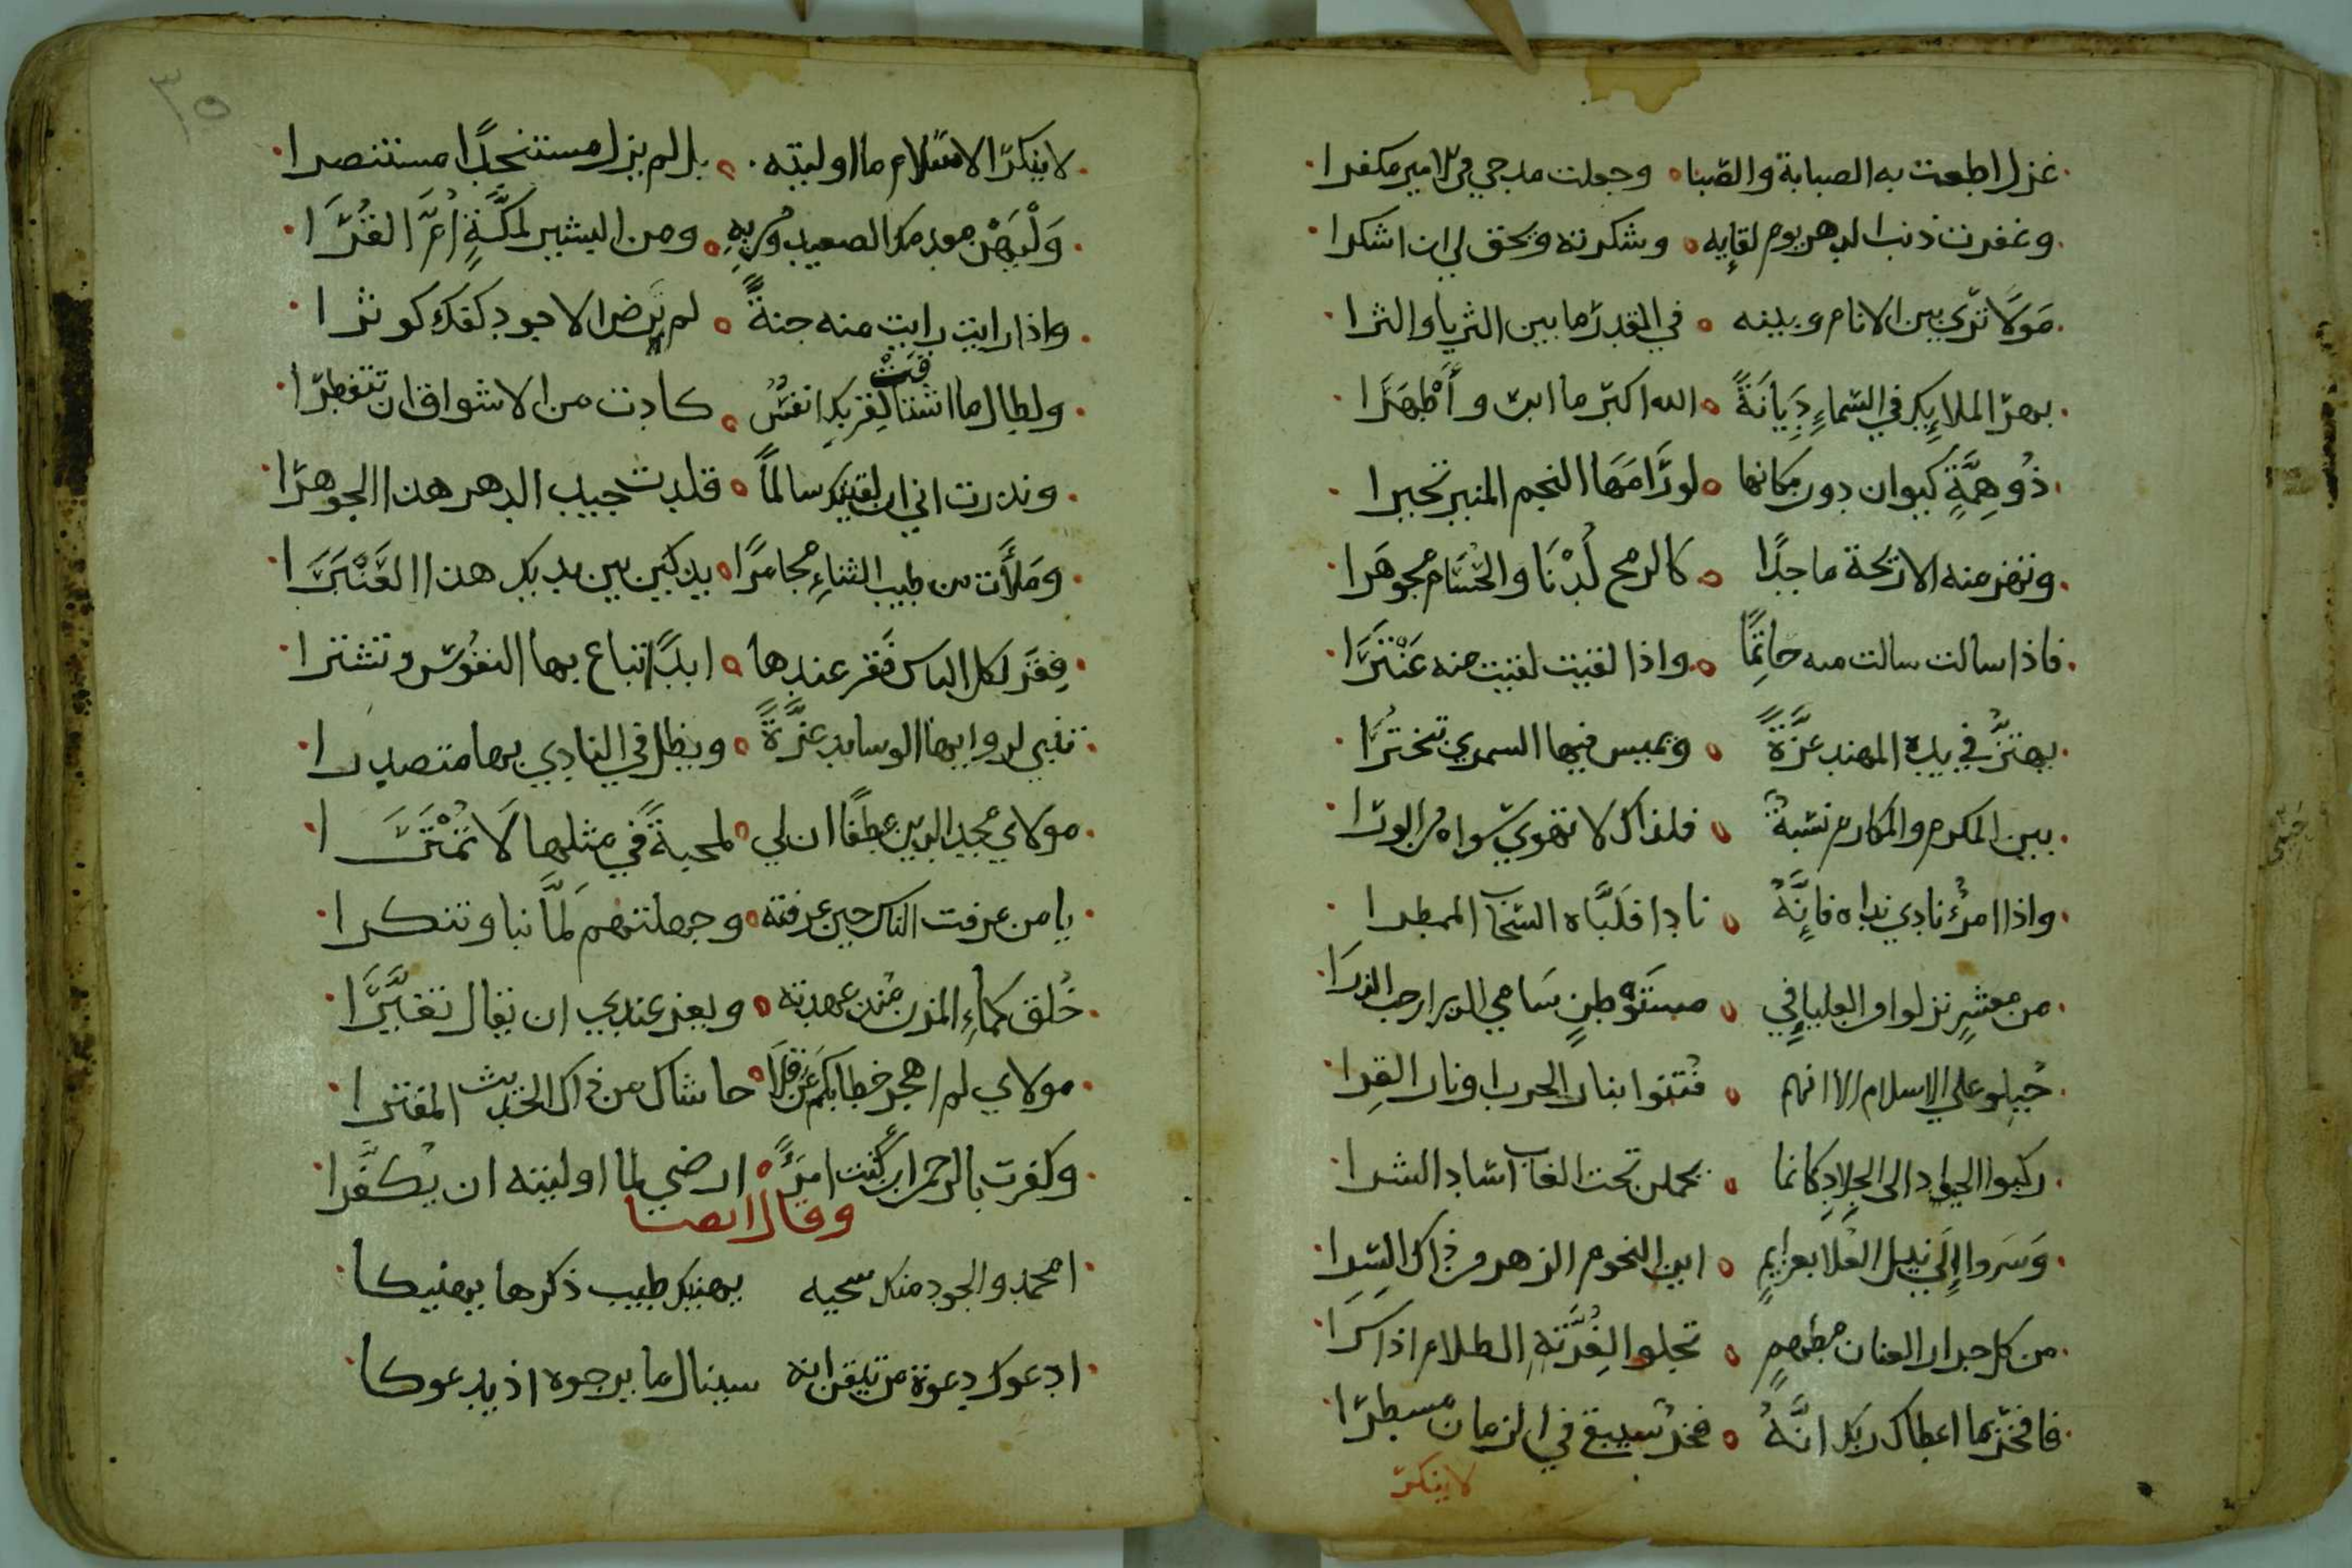 غزل اطعت به الصبابة والصّبا وجعلت مدحي في الامير مكفرا
وغفرت ذنب الدهر يوم لقايِه وشكرته ويحق لي ان اشكرا
مَولًا ترَي بين الانام وبينه في القدر ما بين الثريا والثرا
بهرَ الملايِك في السّماءِ دِيَانَةً الله اكبرَ ما ابرّ وأَطْهَرَا
ذُو هِمَّةٍ كيوان دون مكانها لو رَامَهَا النجم المنير تحيرا
وتهز منه الاريحة ماجدًا كالرمح لُدْنَا والحُسَام مجوهَرا
فاذا سالت سالت منه حاتِمًا واذا لقيت لقيت منه عَنْتَرَا
يهتزُّ في يده المهند عزَّةً ويميس فيها السمري تبخترُا
بين المكرم والمكارم نسبةٌ فلذاك لا تهوي سواه من الورَا
واذا امرؤُ نادي نداه فإنَّهُ نادا فلَبَّاه السّحاب الممطرا
من معشرٍ نزلوا من العليإِ في مستَوْطنٍ سَامي الذرا رحب الذرَا
جُبِلو علي الاسلام الا انهم فُتنوا بنار الحرب او نار القِرا
ركبوا الجواد الى الجِلادِ كانما يحملن تحت الغاب اساد الشرا
وَسَروا إِلَي نيل العُلَا بعزايمٍ اين النجوم الزهر من ذاك السُرا
من كل جرار العنان مطهمٍ تجلو الِغُرَّتهِ الظلام اذا سرَا
فافخر بما اعطاك ربك انَّهُ فخرُ سيبقي في الزمان مسطرَا
لا ينكرَ
٣٥
لا ينكرَ الاسلام ما اوليته بل لم يزل مستنجدًا مستنصرا
وَلْيَهْنِ مقدمك الصعيد ومن بِهِ ومن البشير لمكَّةٍ أُمَّ القُرَا
واذا رايت رايت منه جنةً لم ترض الا جود كفك كوثرا
ولطال ما اشتاقَتْ لقربكِ انفسُ كادت من الاشواق ان تتفطرَا
ونذرت اني ان لقيتك سالماً قلدت جيد الدهر هذا الجوهرَا
ومَلأَت من طيب الثناءِ مجامرًا يذكين بين يديك هذا العَنْبَرَا
فِقَرَ لكل الناس فَقر عندها ابدًا تباع بها النفُوسَ وتشترا
تثني لراويها الوسايد عزَّةً ويظل في النادي بها متصدرا
مولاي مجد الدين عطفًا ان لي لمحبةً في مثلها لَا تُمْتَرَا
يا من عرفت الناس حين عرفته وجهلتهم لَمَّا نبا وتنكرا
خُلق كماءِ المزن مُنذ عهدته ويعز عندي ان يقال تغيَّرَا
مولاي لم اهجر خطابكم عَنْ قلَاً حاشاك من ذاك الحديث المفترا
وكفرت بالرحمن ان كُنت امرءً ارضي لما اوليته ان يُكفَرا
وقال ايضا
امحمد والجود منك سجيه يهنيك طيب ذكرها يهنيكا
ادعوك دعوة من تيقن انه سينال ما يرجوه اذ يدعوكا